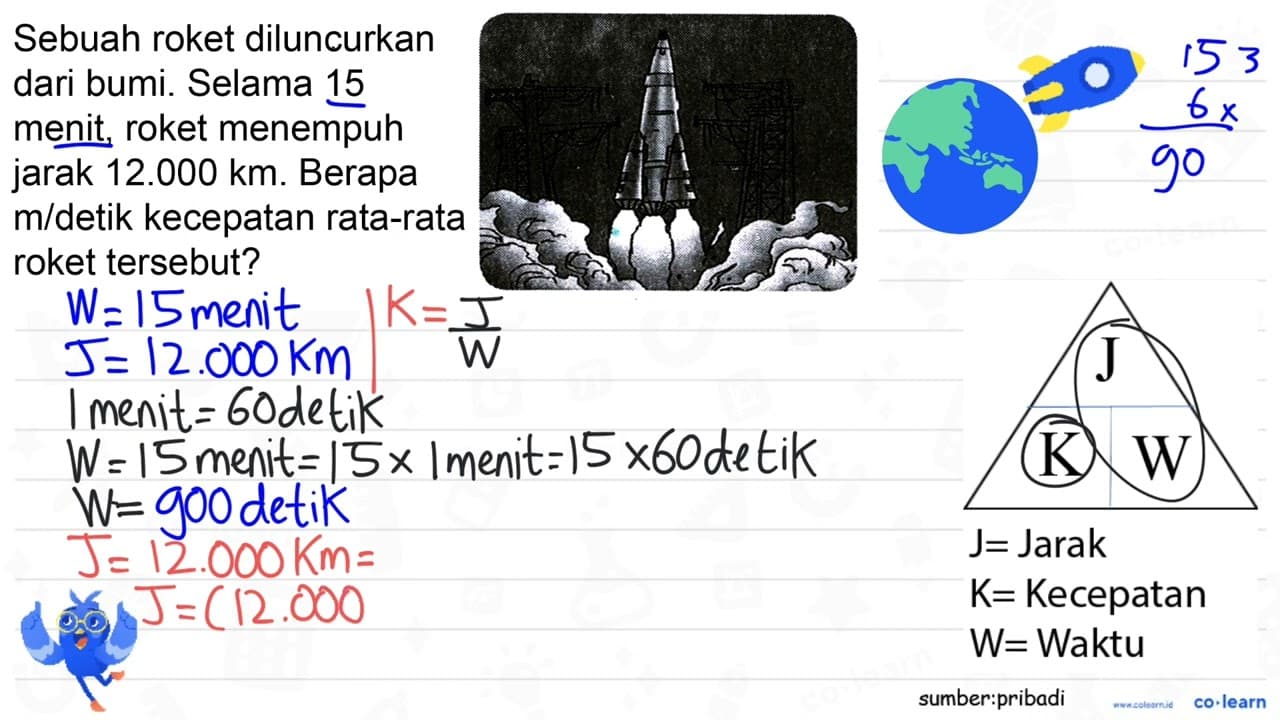 Sebuah roket diluncurkan
dari bumi. Selama 15
menit, roket menempuh
jarak 12.000 km. Berapa
m/detik kecepatan rata-rata
roket tersebut?
W = 15 menit
J = 12.000 Km
K = J
W
1 menit = 60 detik
W = 15 menit = 15 x 1 menit = 15 x 60 detik
W = 900 detik
J = 12.000 Km =
J = (12.000
15 3
6 x
90
J
K W
J= Jarak
K= Kecepatan
W= Waktu
sumber:pribadi
www.colearn.id co·learn
co·learn
co·learn